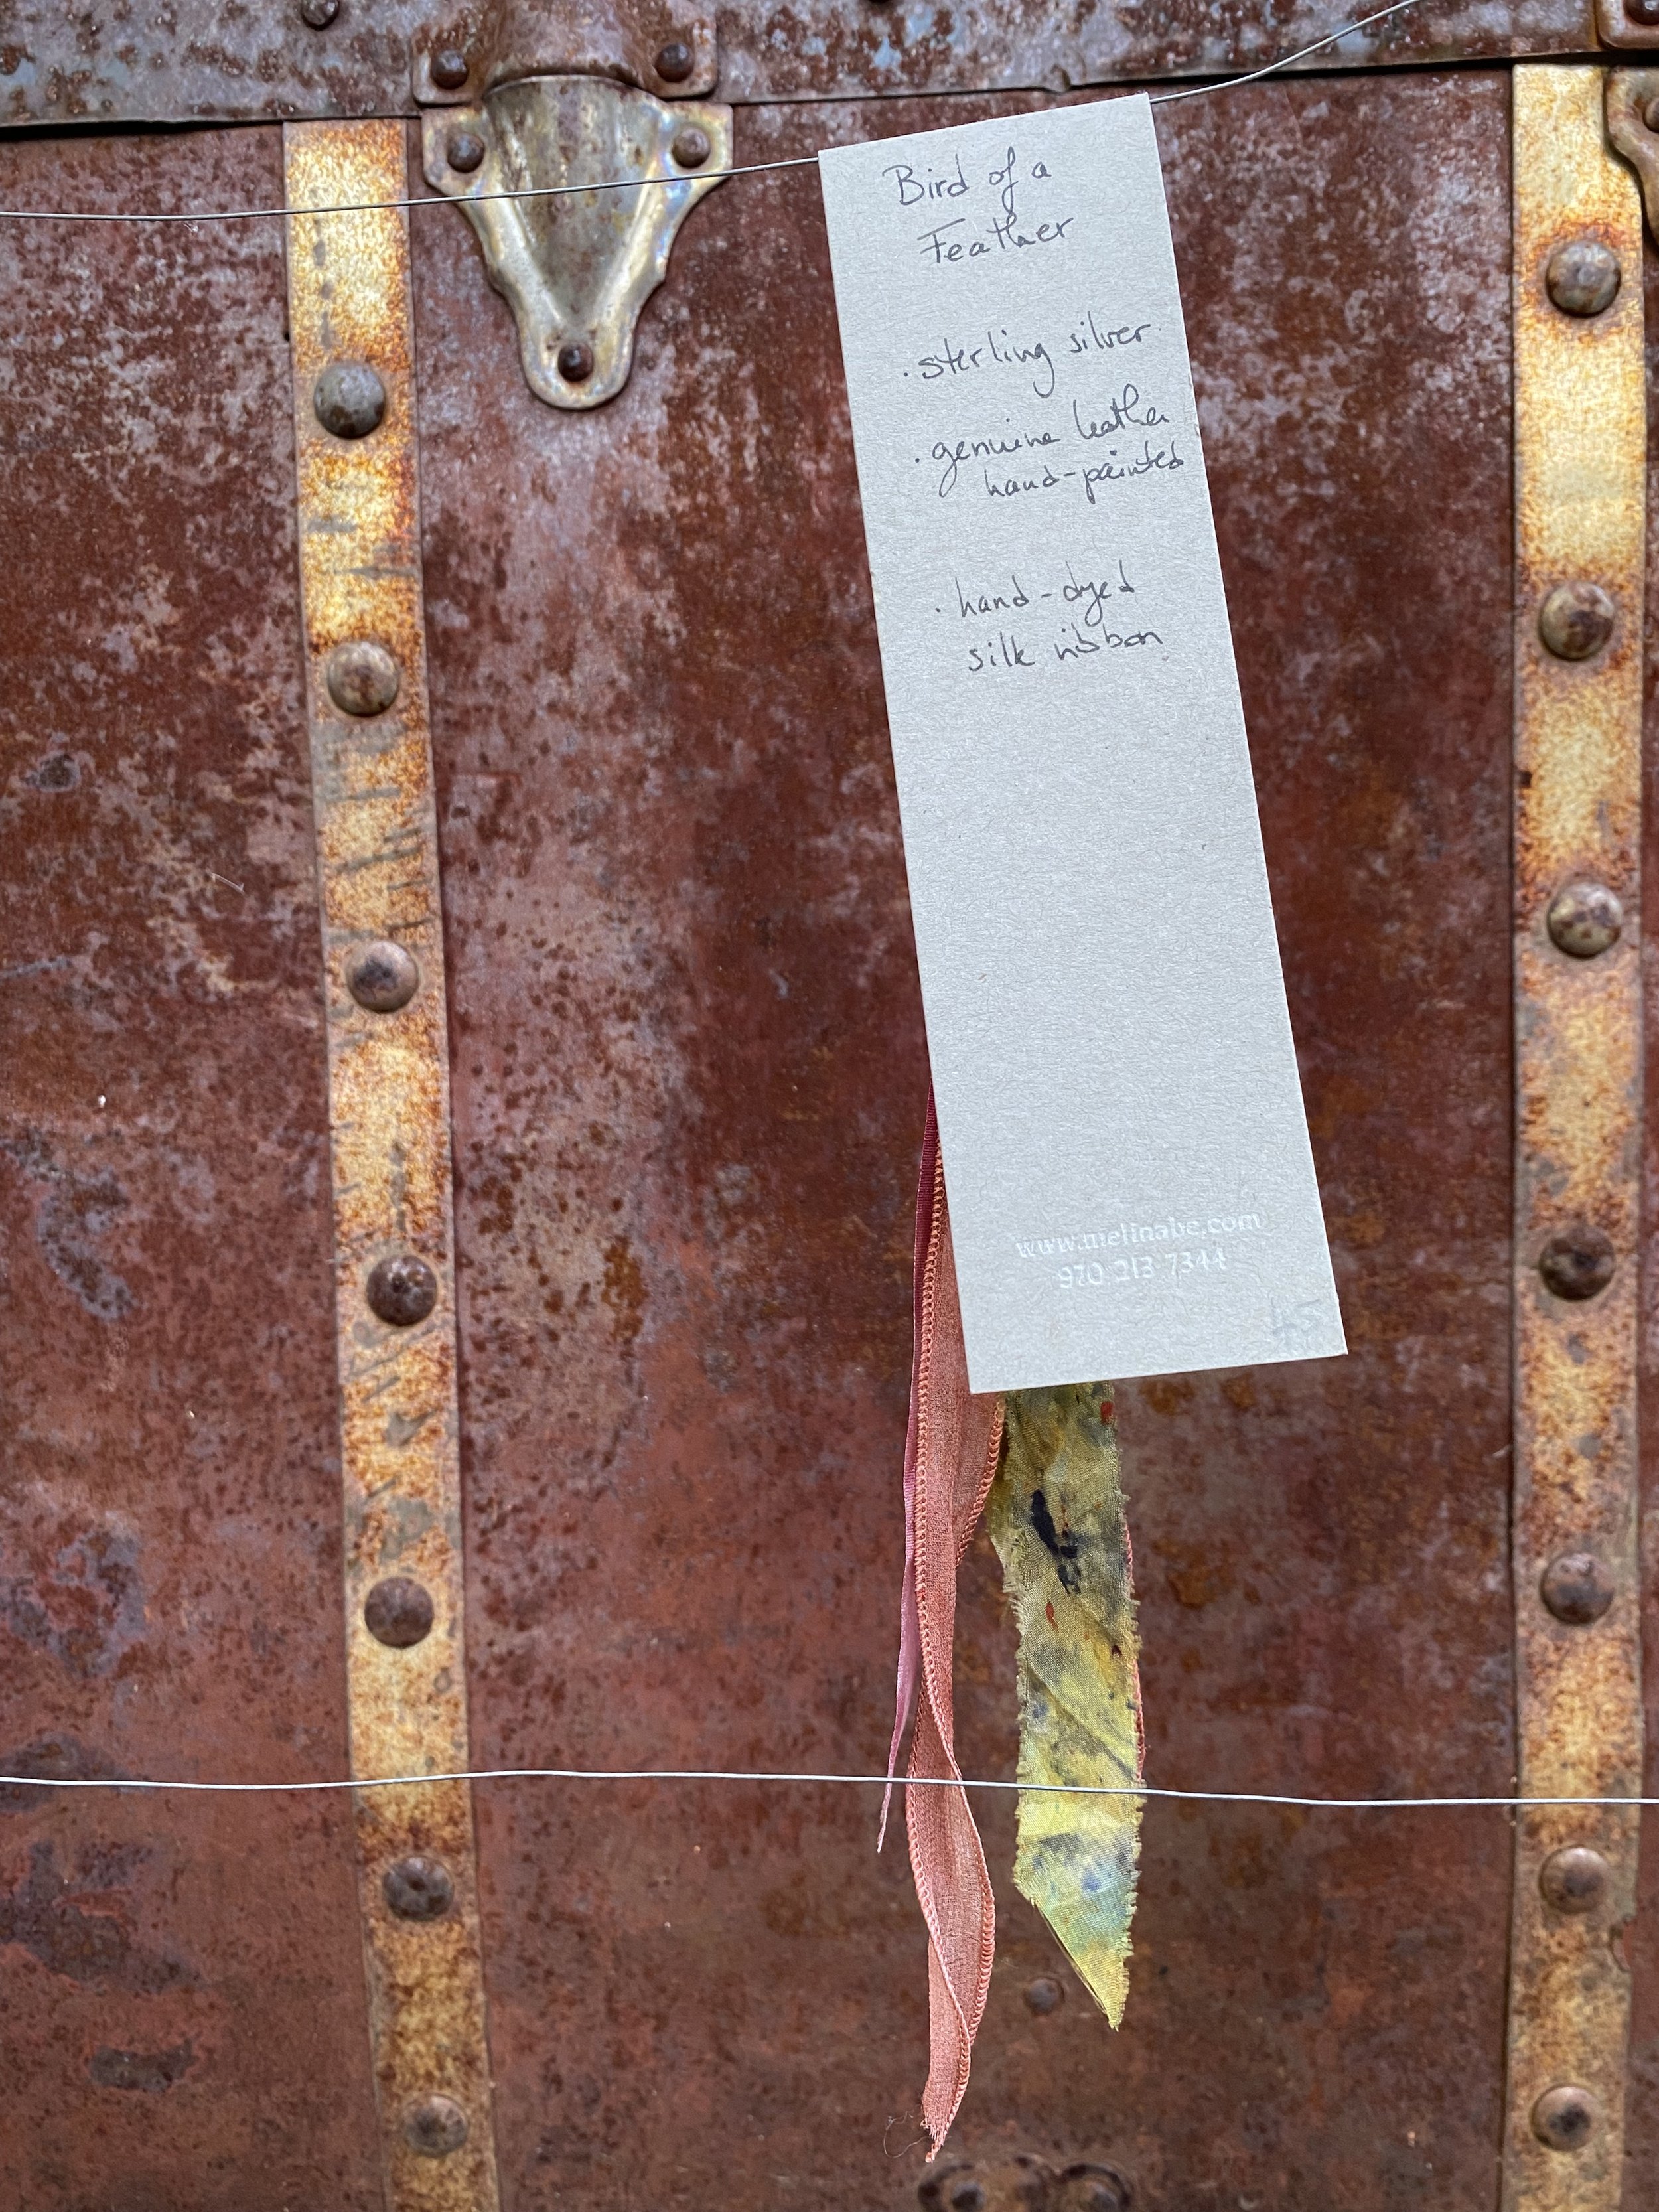 Bird of a
Feather
· sterling silver
· genuine leather
hand-painted
· hand-dyed
silk ribbon
www.melinabe.com
970 213 7344
45